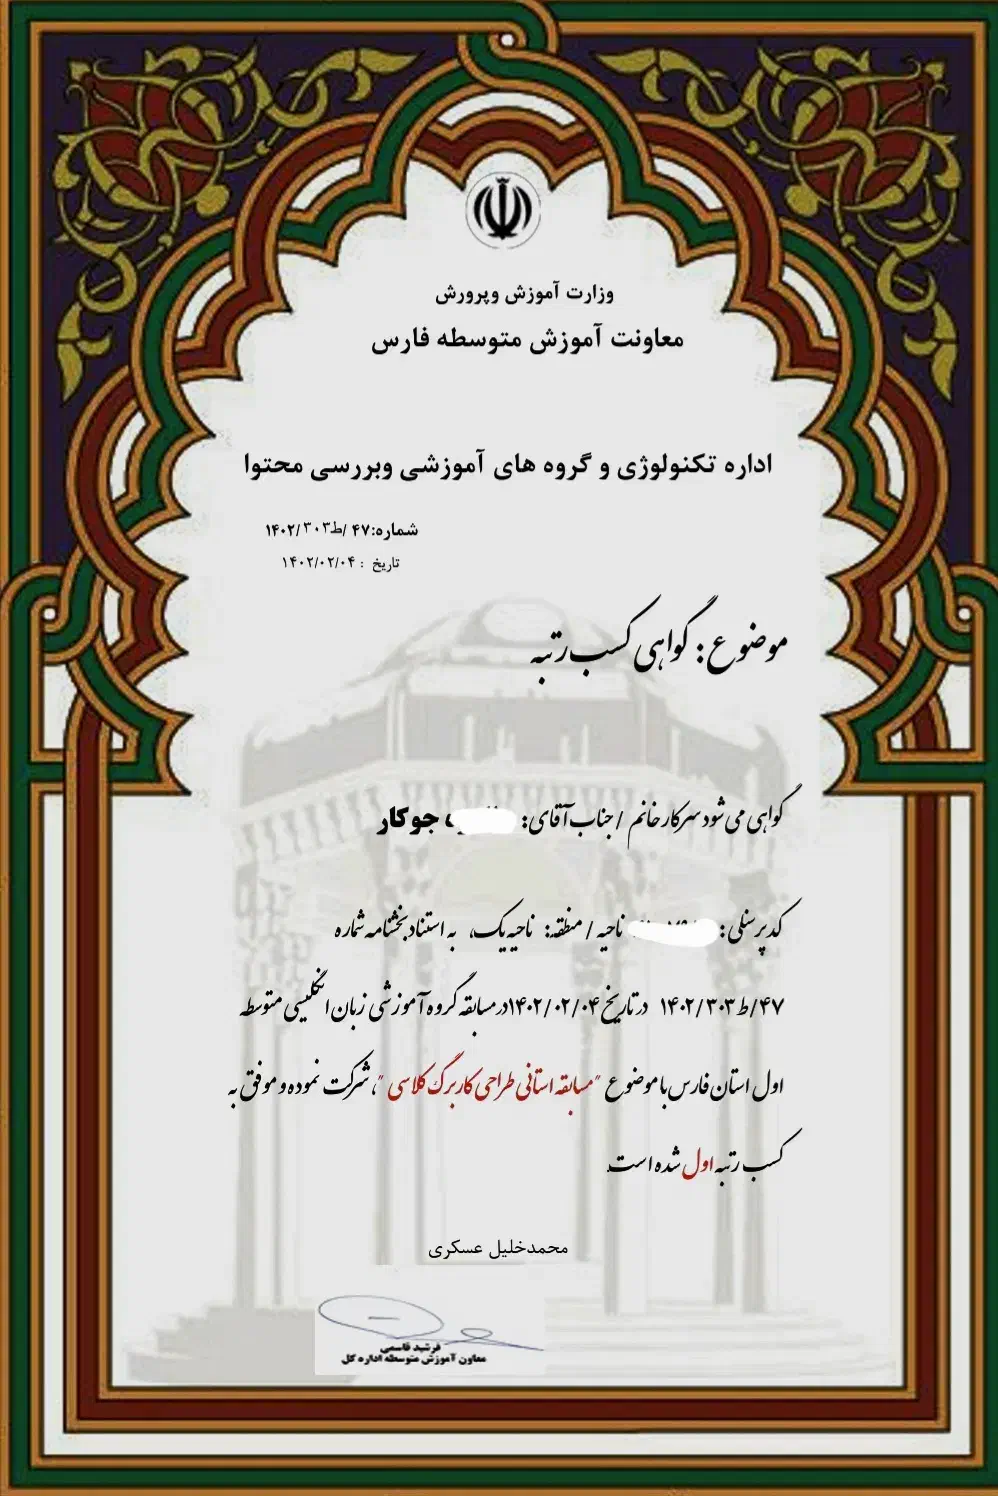 وزارت آموزش وپرورش
معاونت آموزش متوسطه فارس
اداره تکنولوژی و گروه های آموزشی وبررسی محتوا
شماره:۴۷ /ط۱۴۰۲/۳۰۳
تاریخ : ۱۴۰۲/۰۲/۰۴
موضوع : گواهی کسب رتبه
گواهی می شود سرکار خانم / جناب آقای: جوکار
کد پرسنلی : ناحیه / منطقه: ناحیه یک، به استناد بخشنامه شماره
۴۷/ط۱۴۰۲/۳۰۳ در تاریخ ۱۴۰۲/۰۲/۰۴در مسابقه گروه آموزشی زبان انگلیسی متوسطه
اول استان فارس با موضوع "مسابقه استانی طراحی کاربرگ کلاسی "، شرکت نموده و موفق به
کسب رتبه اول شده است.
محمدخلیل عسکری
فرشید قاسمی
معاون آموزش متوسطه اداره کل